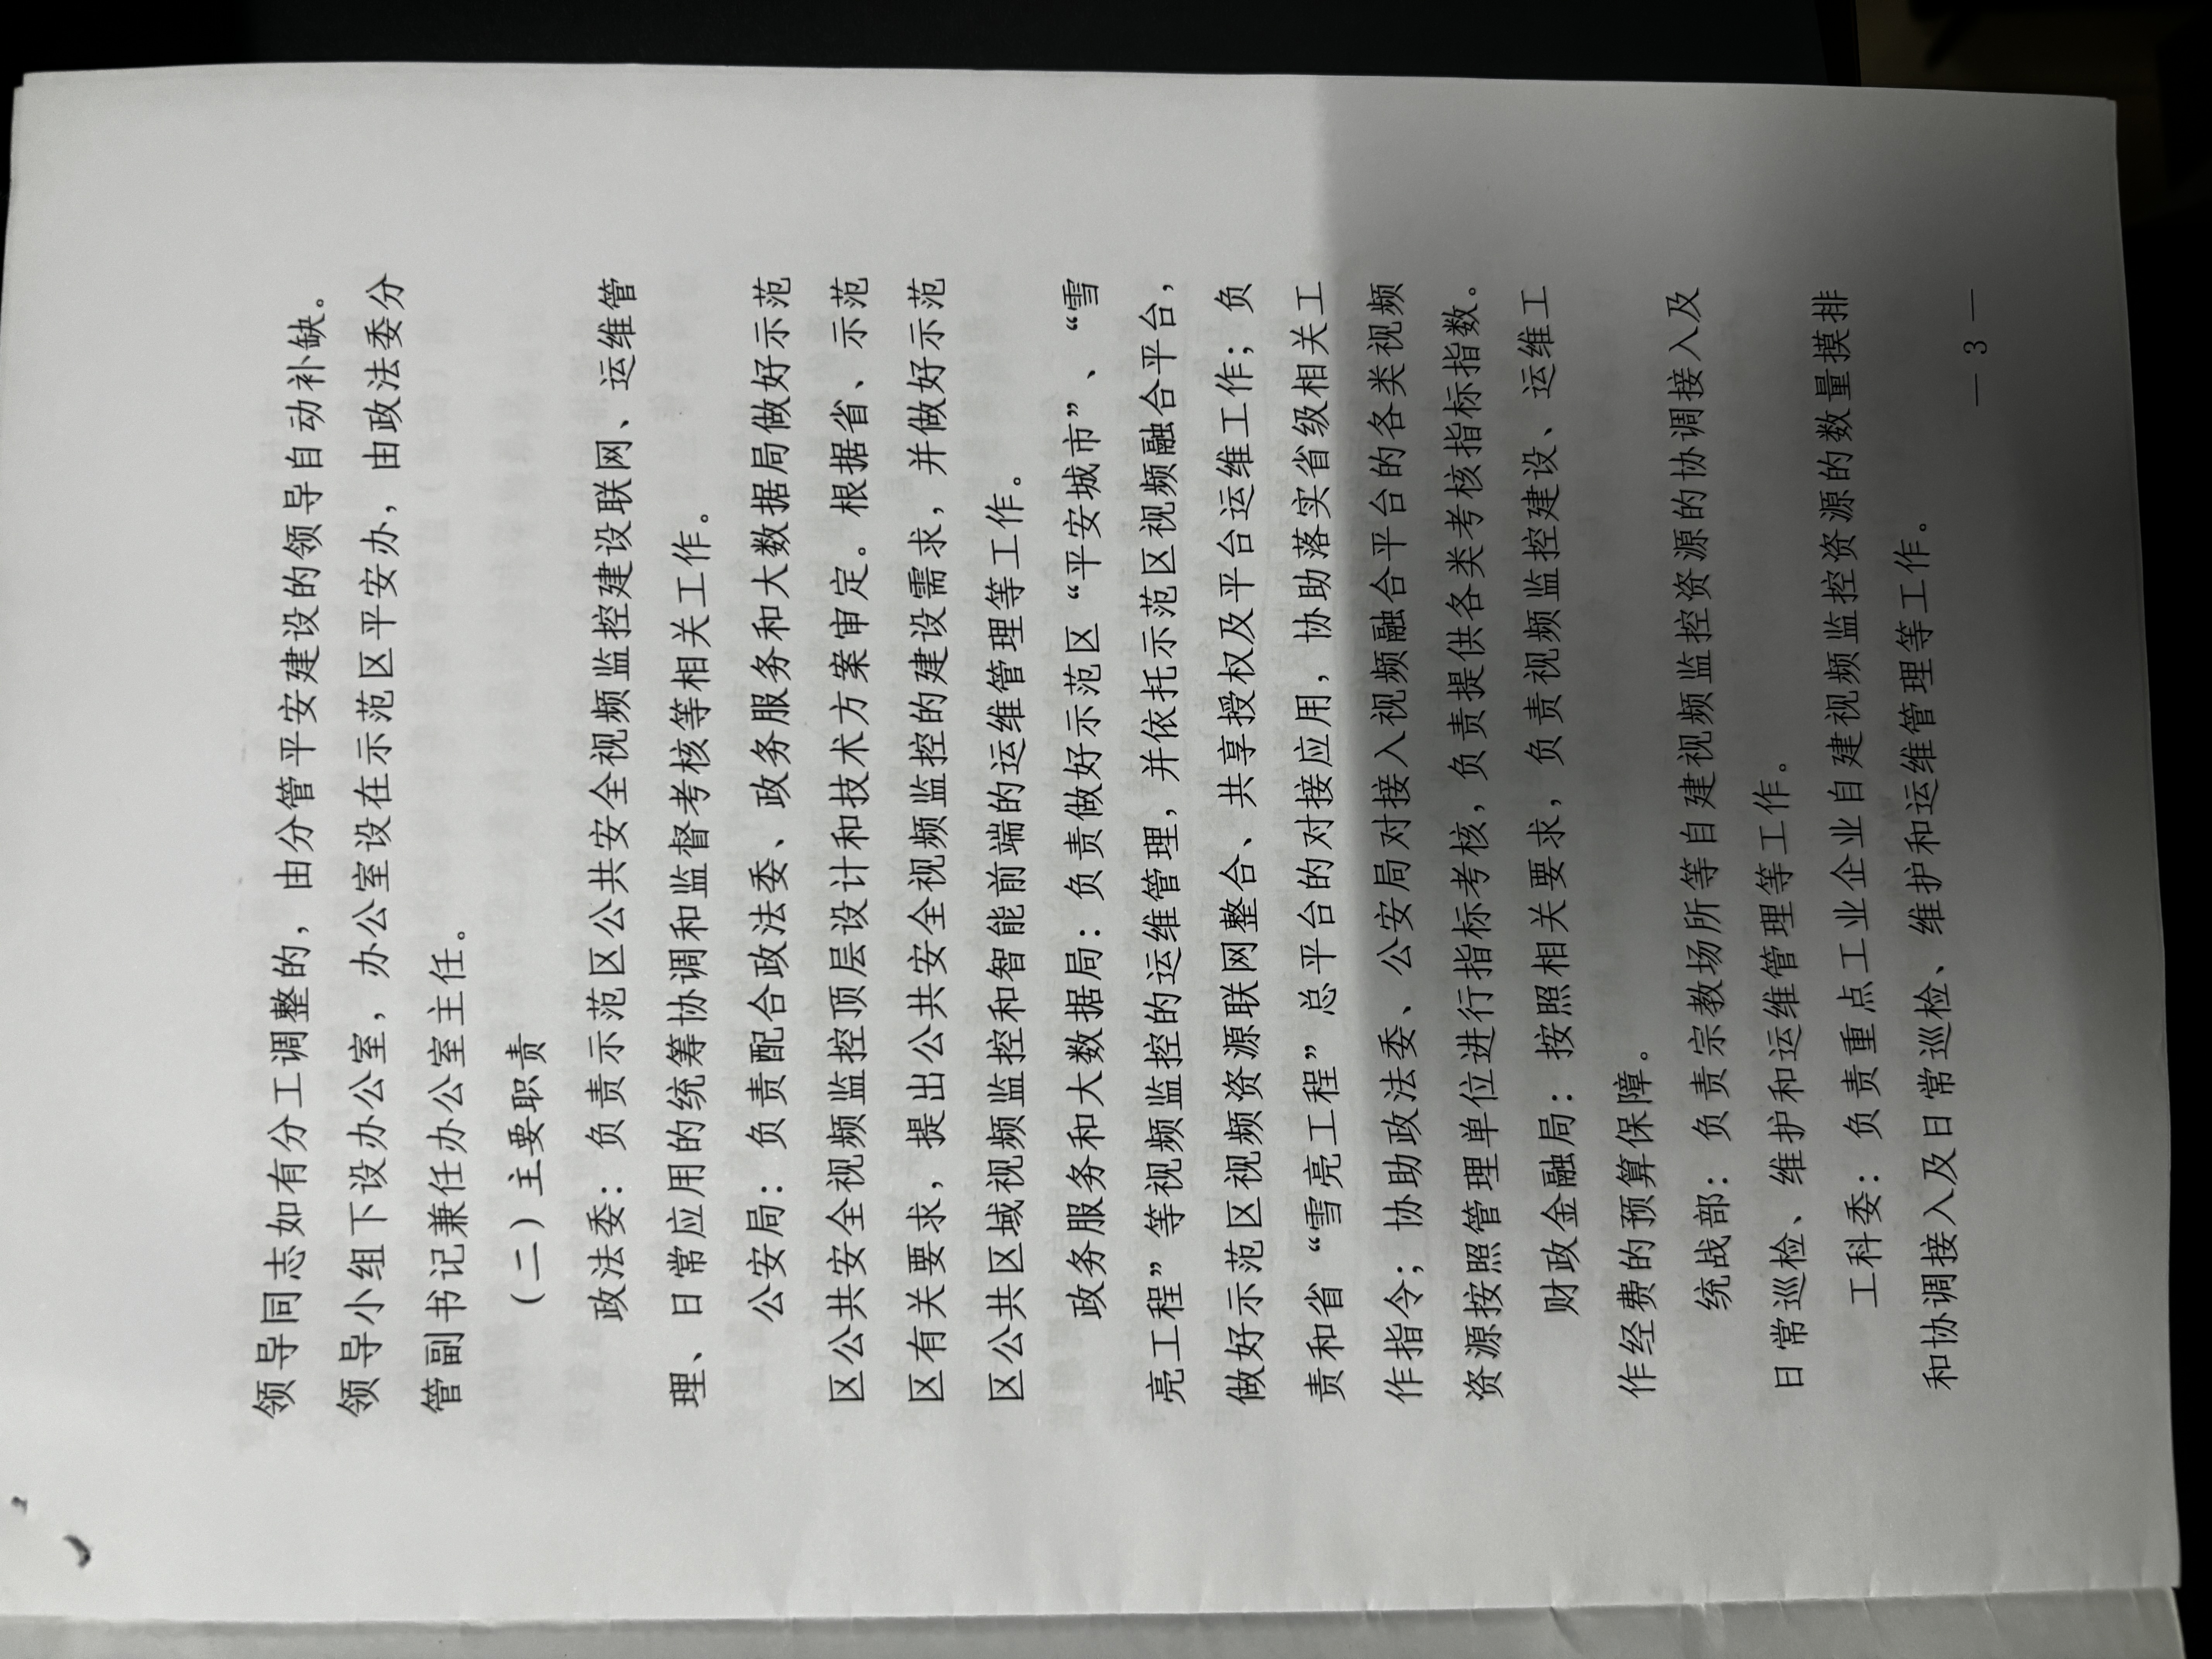 领导同志如有分工调整的，由分管平安建设的领导自动补缺。
领导小组下设办公室，办公室设在示范区平安办，由政法委分
管副书记兼任办公室主任。
（二）主要职责
政法委：负责示范区公共安全视频监控建设联网、运维管
理、日常应用的统筹协调和监督考核等相关工作。
公安局：负责配合政法委、政务服务和大数据局做好示范
区公共安全视频监控顶层设计和技术方案审定。根据省、示范
区有关要求，提出公共安全视频监控的建设需求，并做好示范
区公共区域视频监控和智能前端的运维管理等工作。
政务服务和大数据局：负责做好示范区“平安城市”、“雪
亮工程”等视频监控的运维管理，并依托示范区视频融合平台，
做好示范区视频资源联网整合、共享授权及平台运维工作；负
责和省“雪亮工程”总平台的对接应用，协助落实省级相关工
作指令；协助政法委、公安局对接入视频融合平台的各类视频
资源按照管理单位进行指标考核，负责提供各类考核指标指数。
财政金融局：按照相关要求，负责视频监控建设、运维工
作经费的预算保障。
统战部：负责宗教场所等自建视频监控资源的协调接入及
日常巡检、维护和运维管理等工作。
工科委：负责重点工业企业自建视频监控资源的数量摸排
和协调接入及日常巡检、维护和运维管理等工作。
— 3 —